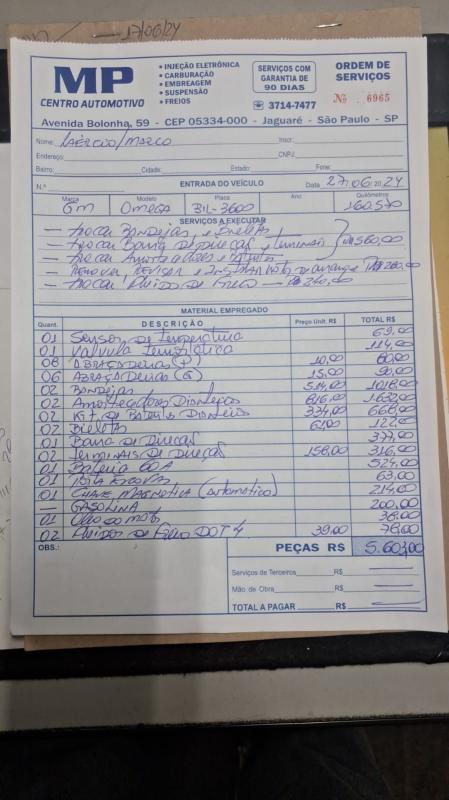 17/06/24
MP
CENTRO AUTOMOTIVO
• INJEÇÃO ELETRÔNICA
• CARBURAÇÃO
• EMBREAGEM
• SUSPENSÃO
• FREIOS
SERVIÇOS COM
GARANTIA DE
90 DIAS
☎ 3714-7477
ORDEM DE
SERVIÇOS
Nº 6965
Avenida Bolonha, 59 - CEP 05334-000 - Jaguaré - São Paulo - SP
Nome: Laércio/Marco Inscr.:
Endereço: CNPJ
Bairro: Cidade: Estado: Fone:
N.º ENTRADA DO VEÍCULO Data 27/06/2024
Marca Modelo Placa Ano Quilômetros
GM Omega BIL-3600 160570
SERVIÇOS A EXECUTAR
— trocar Bandejas e Bieletas
— trocar Barra de direçao e terminais R$560,00
— trocar Amortecedores e Batentes
— Remover, Revisar e Instalar moto de arranque R$280,00
— trocar fluido de freio — R$240,00
MATERIAL EMPREGADO
Quant. DESCRIÇÃO Preço Unit. R$ TOTAL R$
01 Sensor de temperatura 69,00
01 Valvula termostatica 114,00
08 Abraçadeiras (P) 10,00 80,00
06 Abraçadeiras (G) 15,00 90,00
02 Bandejas 514,00 1018,00
02 Amortecedores Dianteiros 816,00 1632,00
02 Kit de Batentes Dianteiros 334,00 668,00
02 Bieletas 61,00 122,00
01 Barra de direçao 377,00
02 terminais de direçao 158,00 316,00
01 Bateria 60A 524,00
01 Porta Escova 63,00
01 Chave Magnetica (automatico) 214,00
— GASOLINA 200,00
01 Oleo do motor 38,00
02 Fluidos de freio DOT 4 39,00 78,00
OBS.: PEÇAS R$ 5.603,00
Serviços de Terceiros R$
Mão de Obra R$
TOTAL A PAGAR R$